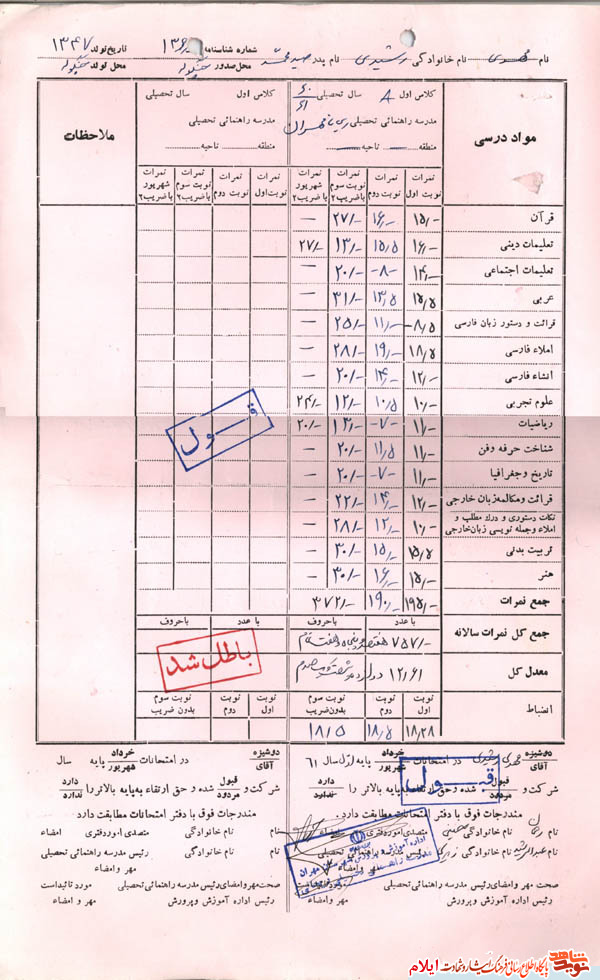 نام مهدی نام خانوادگی رشیدی نام پدر صید محمد شماره شناسنامه تاریخ تولد ۱۳۴۷
محل صدور محل تولد
مواد درسی
کلاس اول ۸ سال تحصیلی ۶۰ ۶۱
مدرسه راهنمائی تحصیلی مهران
منطقه ناحیه:
کلاس اول سال تحصیلی
مدرسه راهنمائی تحصیلی
منطقه: ناحیه:
ملاحظات
نمرات نوبت اول نمرات نوبت دوم نمرات نوبت سوم با ضریب ۲ نمرات شهریور با ضریب ۲ نمرات نوبت اول نمرات نوبت دوم نمرات نوبت سوم با ضریب ۲ نمرات شهریور با ضریب ۲
قرآن ۱۵/- ۱۶/- ۲۷/- —
تعلیمات دینی ۱۶/- ۱۵/۵ ۱۳/- ۲۷/-
تعلیمات اجتماعی ۱۴/- ۸/- ۲۰/- —
عربی ۱۵/۵ ۱۳/۵ ۳۱/- —
قرائت و دستور زبان فارسی ۸/۵ ۱۱/- ۲۵/- —
املاء فارسی ۱۸/۵ ۱۹/- ۲۸/- —
انشاء فارسی ۱۲/- ۱۴/- ۲۰/- —
علوم تجربی ۱۰/- ۱۰/۵ ۱۲/- ۲۴/-
ریاضیات ۱۱/- ۷/- ۱۲/- ۲۰/-
شناخت حرفه وفن ۱۱/- ۱۱/۵ ۲۰/- —
تاریخ و جغرافیا ۱۱/- ۷/- ۲۰/- —
قرائت و مکالمه زبان خارجی ۱۲/- ۱۴/- ۲۲/- —
نکات دستوری و درك مطلب و املاء و جمله نویسی زبان خارجی ۱۰/- ۱۲/- ۲۸/- —
تربیت بدنی ۱۵/۵ ۱۵/- ۳۰/- —
هنر ۱۵/- ۱۶/- ۳۰/- —
جمع نمرات ۱۹۵/- ۱۹۰/- ۳۷۲/-
با عدد با حروف با عدد با حروف
جمع کل نمرات سالانه ۷۵۷/- هفتصد و پنجاه و هفت تمام
معدل کل ۱۲/۶۱ دوازده و شصت و یک صدم
انضباط
نوبت اول نوبت دوم نوبت سوم بدون ضریب نوبت اول نوبت دوم نوبت سوم بدون ضریب
۱۸/۲۸ ۱۸/۵ ۱۸/۵
قبول
باطل شد
دوشیزه آقای مهدی رشیدی در امتحانات خرداد شهریور پایه اول سال ۶۱
شرکت و قبول مردود شده و حق ارتقاء به پایه بالاتر را دارد ندارد
مندرجات فوق با دفتر امتحانات مطابقت دارد.
نام نام خانوادگی متصدی امور دفتری امضاء
نام نام خانوادگی رئیس مدرسه راهنمائی تحصیلی
مهر و امضاء
صحت مهر و امضای رئیس مدرسه راهنمائی تحصیلی
رئیس اداره آموزش و پرورش مهر و امضاء
قبول
اداره آموزش و پرورش شهرستان مهران
دوشیزه آقای در امتحانات خرداد شهریور پایه سال
شرکت و قبول مردود شده و حق ارتقاء به پایه بالاتر را دارد ندارد
مندرجات فوق با دفتر امتحانات مطابقت دارد.
نام نام خانوادگی متصدی امور دفتری امضاء
نام نام خانوادگی رئیس مدرسه راهنمائی تحصیلی
مهر و امضاء
صحت مهر و امضای رئیس مدرسه راهنمائی تحصیلی مورد تائید است
رئیس اداره آموزش و پرورش مهر و امضاء
نوید شاهد پایگاه اطلاع رسانی فرهنگ ایثار و شهادت ایلام